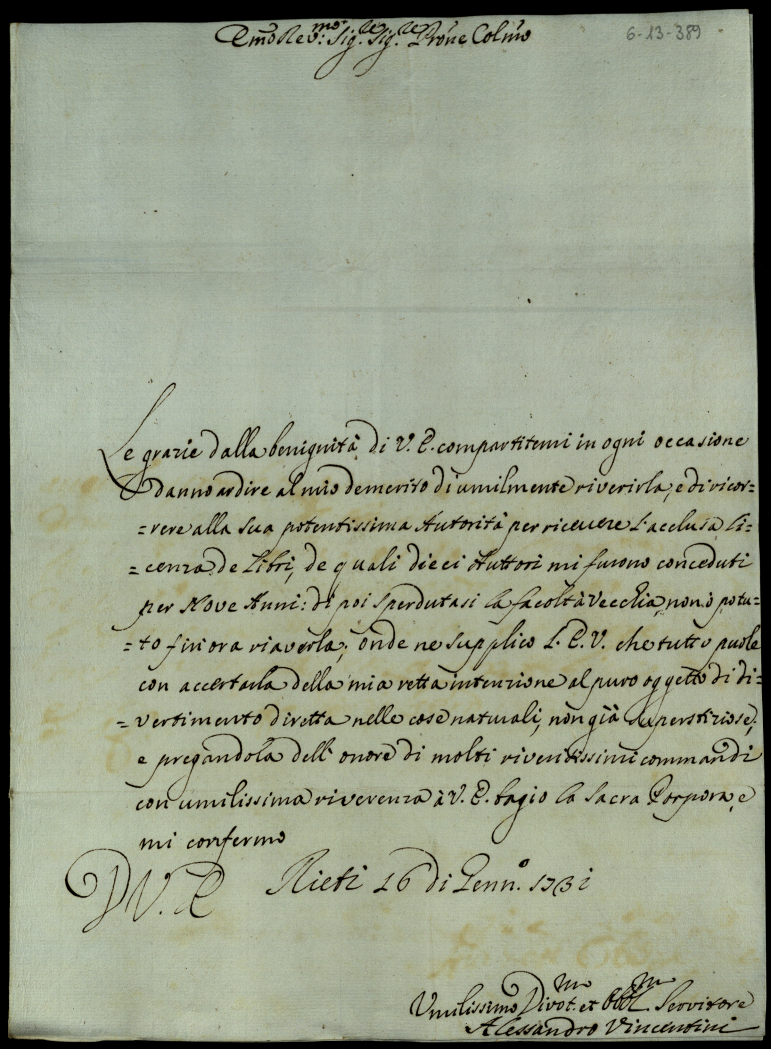 Emo Re.mo Sig.re Sig.re Prone Colmo
6-13-389
Le grazie dalla benignità di V. E. compartitemi in ogni occasione
danno ardire al mio demerito di umilmente riverirla, e di ricor=
=rere alla sua potentissima Autorità per ricevere l'acclusa Li=
=cenza de Libri, de quali dieci Auttori mi furono conceduti
per Nove Anni: di poi sperdutasi la facoltà vecchia, non ò potu=
=to fin'ora riaverla; onde ne supplico l'E. V. che tutto puole
con accertarla della mia retta intenzione al puro oggetto di di=
=vertimento diretta nelle cose naturali, non già superstiziose;
e pregandola dell' onore di molti riveritissimi commandi
con umilissima riverenza à V. E. bagio la Sacra Porpora, e
mi confermo
D V. E Rieti 16 di Genn.o 1731
Umilissimo Divot.mo et Obbl.mo Servitore
Alessandro Vincentini